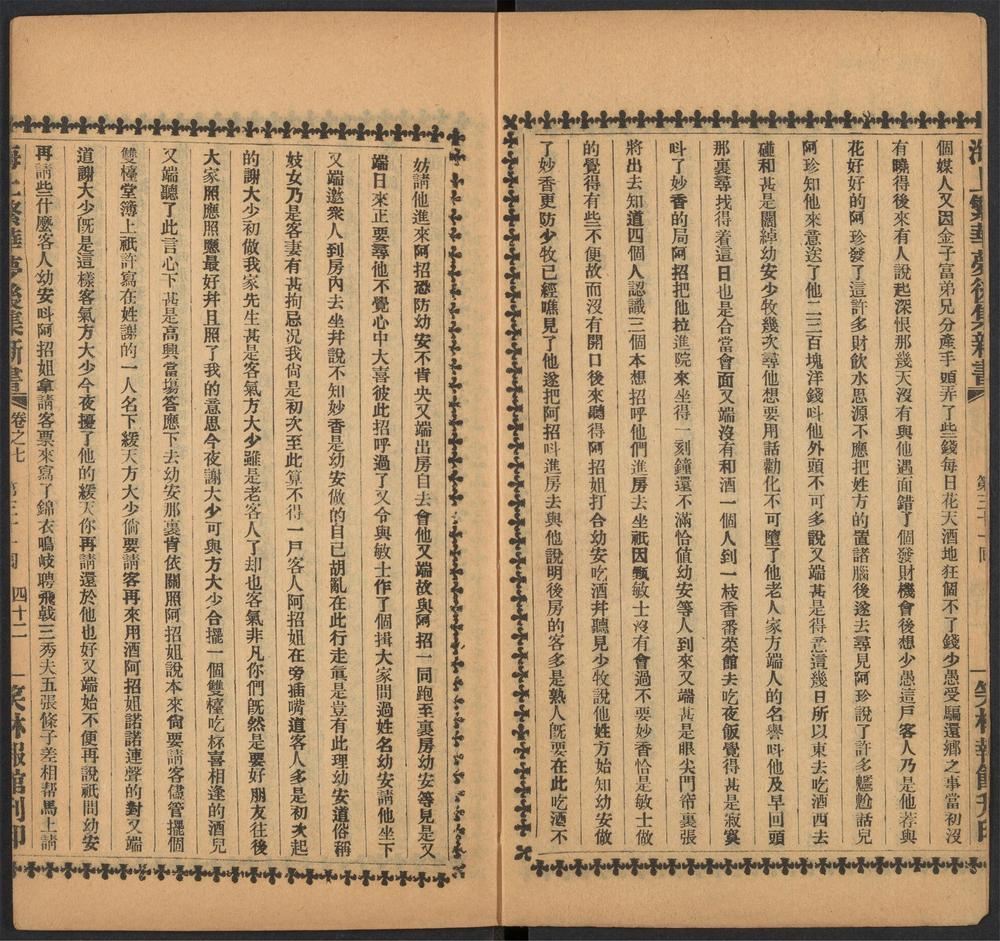 海上繁華夢後集新書
第三十一回
笑林報館刋印
個媒人又因金子富弟兄分產手頭弄了些錢每日花天酒地狂個不了錢少愚受騙還鄉之事當初沒
有曉得後來有人說起深恨那幾天沒有與他遇面錯了個發財機會後想少愚這戶客人乃是他荐與
花好好的阿珍發了這許多財飲水思源不應把姓方的置諸腦後遂去尋見阿珍說了許多尷尬話兒
阿珍知他來意送了他二三百塊洋錢呌他外頭不可多說又端甚是得意這幾日所以東去吃酒西去
碰和甚是闊綽幼安少牧幾次尋他想要用話勸化不可墮了他老人家方端人的名譽呌他及早回頭
那裏尋找得着這日也是合當會面又端沒有和酒一個人到一枝香番菜館去吃夜飯覺得甚是寂寞
呌了妙香的局阿招把他拉進院來坐得一刻鐘還不滿恰值幼安等人到來又端甚是眼尖門帘裏張
將出去知道四個人認識三個本想招呼他們進房去坐祇因甄敏士沒有會過不要妙香恰是敏士做
的覺得有些不便故而沒有開口後來聽得阿招姐打合幼安吃酒幷聽見少牧說他姓方始知幼安做
了妙香更防少牧已經瞧見了他遂把阿招呌進房去與他說明後房的客多是熟人旣要在此吃酒不
妨請他進來阿招恐防幼安不肯央又端出房自去會他又端故與阿招一同跑至裏房幼安等見是又
端日來正要尋他不覺心中大喜彼此招呼過了又令與敏士作了個揖大家問過姓名幼安請他坐下
又端邀衆人到房內去坐幷說不知妙香是幼安做的自已胡亂在此行走眞是豈有此理幼安道俗稱
妓女乃是客妻有甚拘忌况我尙是初次至此算不得一戶客人阿招姐在旁插嘴道客人多是初次起
的謝大少初做我家先生甚是客氣方大少雖是老客人了却也客氣非凡你們旣然是要好朋友往後
大家照應照應最好幷且照了我的意思今夜謝大少可與方大少合擺一個雙檯吃杯喜相逢的酒兒
又端聽了此言心下甚是高興當塲答應下去幼安那裏肯依關照阿招姐說本來尙要請客儘管擺個
雙檯堂簿上祇許寫在姓謝的一人名下緩天方大少倘要請客再來用酒阿招姐諾諾連聲的對又端
道謝大少旣是這樣客氣方大少今夜擾了他的緩天你再請還於他也好又端始不便再說祇問幼安
再請些什麼客人幼安呌阿招姐拿請客票來寫了錦衣鳴岐聘飛戟三秀夫五張條子差相帮馬上請
海上繁華夢後集新書
卷之七
第三十一回
四十二
笑林報館刋印